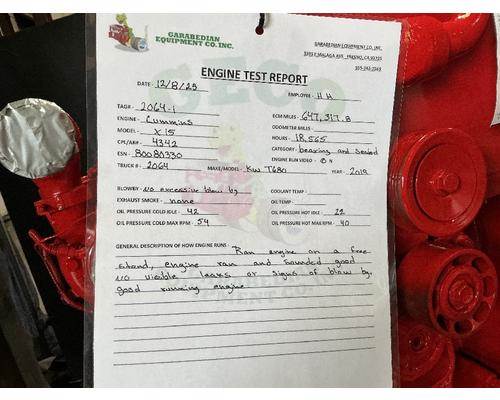 GARABEDIAN
EQUIPMENT CO. INC.
GARABEDIAN EQUIPMENT CO. INC.
ENGINE TEST REPORT
DATE - 12/8/25 EMPLOYEE - H H
TAG# - 2064-1 ECM MILES - 647,317.8
ENGINE - Cummins ODOMETER MILES -
MODEL - X 15 HOURS - 18,565
CPL/AR# - 4342 CATEGORY - bearing and sealed
ESN - 80080330 ENGINE RUN VIDEO - N
TRUCK # - 2064 MAKE/MODEL - KW T680 YEAR - 2019
BLOWBY - No excessive blow by COOLANT TEMP -
EXHAUST SMOKE - none OIL TEMP -
OIL PRESSURE COLD IDLE - 42 OIL PRESSURE HOT IDLE - 22
OIL PRESSURE COLD MAX RPM - 54 OIL PRESSURE HOT MAX RPM - 40
GENERAL DESCRIPTION OF HOW ENGINE RUNS - Ran engine on a free
stand, engine ran and sounded good
No visible leaks or signs of blow by
good running engine